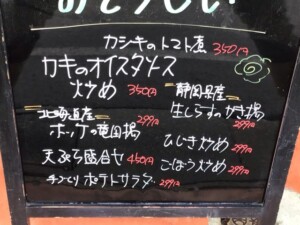 おとうしい
カジキのトマト煮 350円
カキのオイスタソース
炒め 350円
静岡県産
生しらすのかき揚 299円
北海道産
ホッケの竜田揚 299円
ひじき炒め 299円
天ぷら盛合せ 450円
ごぼう炒め 299円
手づくりポテトサラダ 299円